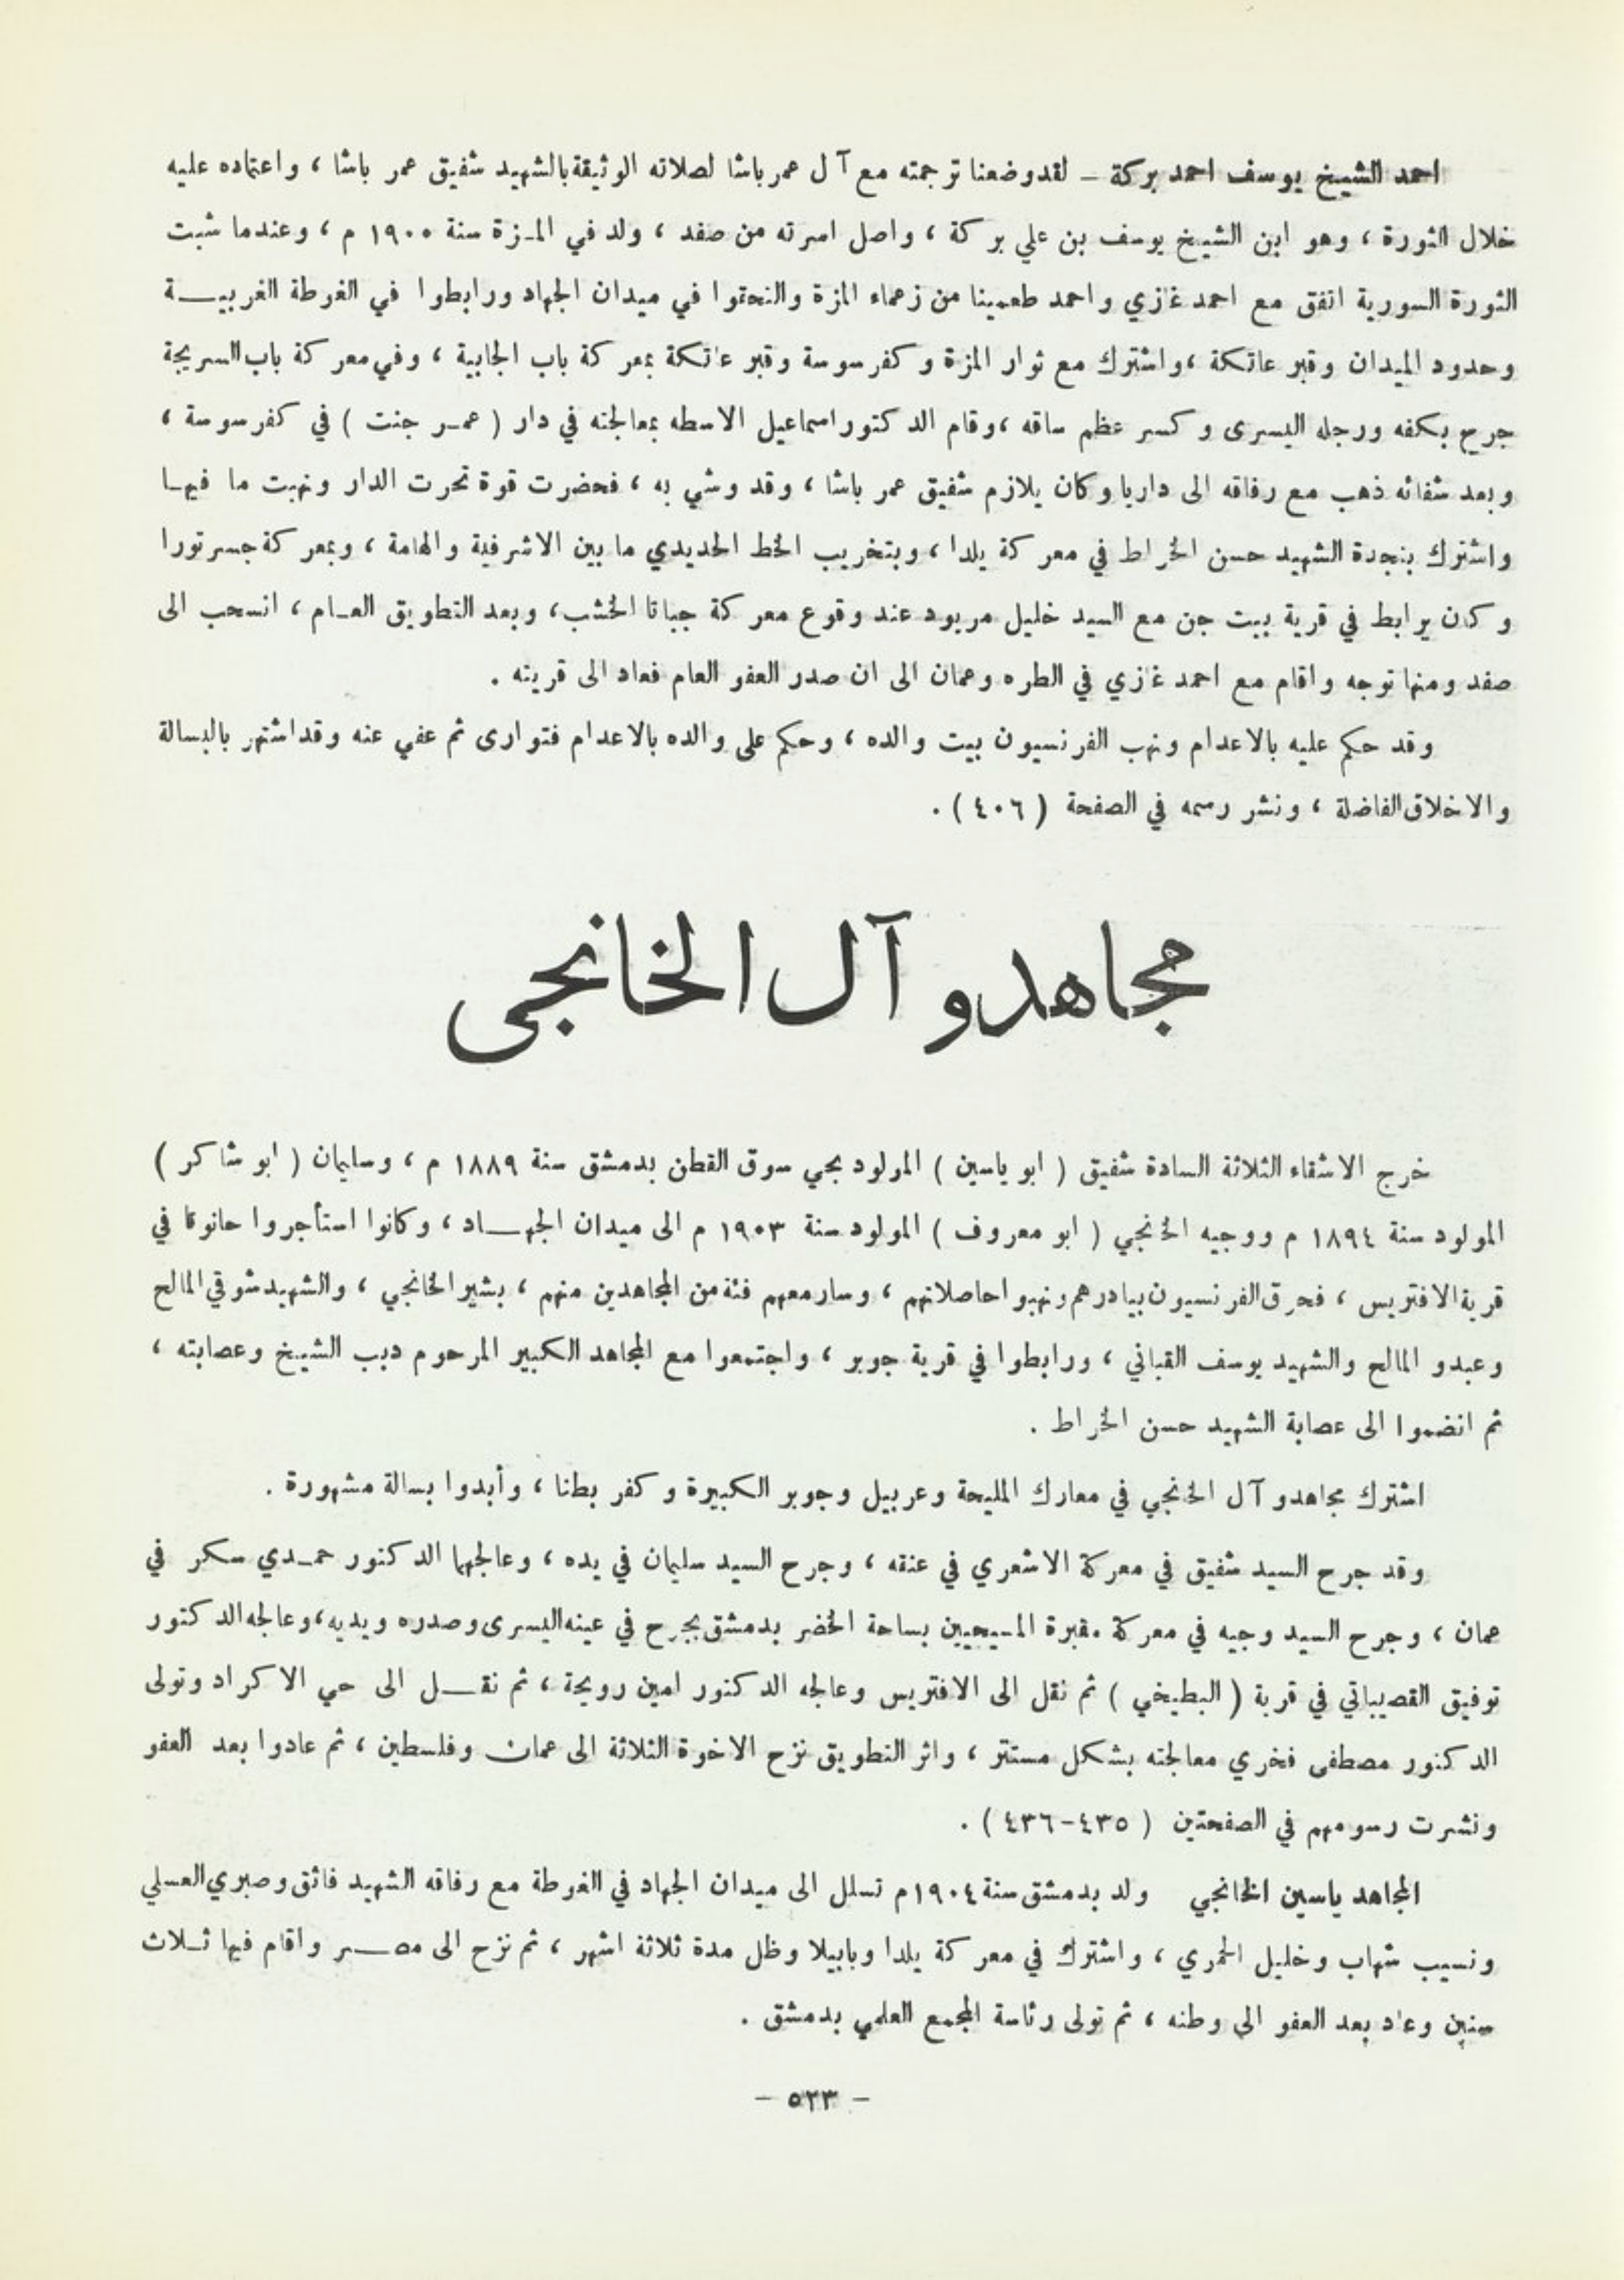 احمد الشيخ يوسف احمد بركة – لقد وضعنا ترجمته مع آل عمر باشا لصلاته الوثيقة بالشهيد شفيق عمر باشا ، واعتماده عليه
خلال الثورة ، وهو ابن الشيخ يوسف بن علي بركة ، واصل اسرته من صفد ، ولد في المـزة سنة ١٩٠٠ م ، وعندما شبت
الثورة السورية اتفق مع احمد غازي واحمد طعمينا من زعماء المزة والتحقوا في ميدان الجهاد ورابطوا في الغوطة الغربيــة
وحدود الميدان وقبر عاتكة ، واشترك مع ثوار المزة وكفرسوسة وقبر عاتكة بمعركة باب الجابية ، وفي معركة باب السريجة
جرح بكفه ورجله اليسرى وكسر عظم ساقه ، وقام الدكتور اسماعيل الاسطه بمعالجته في دار ( عمـر جنت ) في كفرسوسة ،
وبعد شفائه ذهب مع رفاقه الى داريا وكان يلازم شفيق عمر باشا ، وقد وشي به ، فحضرت قوة تحرت الدار ونهبت ما فيهـا
واشترك بنجدة الشهيد حسن الخراط في معركة يلدا ، وبتخريب الخط الحديدي ما بين الاشرفية والهامة ، وبمعركة جسر تورا
وكان يرابط في قرية بيت جن مع السيد خليل مريود عند وقوع معركة جباتا الخشب ، وبعد التطويق العـام ، انسحب الى
صفد ومنها توجه واقام مع احمد غازي في الطره وعمان الى ان صدر العفو العام فعاد الى قريته .
وقد حكم عليه بالاعدام ونهب الفرنسيون بيت والده ، وحكم على والده بالاعدام فتوارى ثم عفي عنه وقد اشتهر بالبسالة
والاخلاق الفاضلة ، ونشر رسمه في الصفحة ( ٤٠٦ ) .
مجاهدو آل الخانجي
خرج الاشقاء الثلاثة السادة شفيق ( ابو ياسين ) المولود بحي سوق القطن بدمشق سنة ١٨٨٩ م ، وسليمان ( ابو شاكر )
المولود سنة ١٨٩٤ م ووجيه الخانجي ( ابو معروف ) المولود سنة ١٩٠٣ م الى ميدان الجهــاد ، وكانوا استأجروا حانوتا في
قرية الافتريس ، فحرق الفرنسيون بيادرهم ونهبوا حاصلاتهم ، وسار معهم فئة من المجاهدين منهم ، بشير الخانجي ، والشهيد شوقي المالح
وعبدو المالح والشهيد يوسف القباني ، ورابطوا في قرية جوبر ، واجتمعوا مع المجاهد الكبير المرحوم ديب الشيخ وعصابته ،
ثم انضموا الى عصابة الشهيد حسن الخراط .
اشترك مجاهدو آل الخانجي في معارك المليحة وعربيل وجوبر الكبيرة وكفر بطنا ، وأبدوا بسالة مشهورة .
وقد جرح السيد شفيق في معركة الاشعري في عنقه ، وجرح السيد سليمان في يده ، وعالجهما الدكتور حمـدي سكر في
عمان ، وجرح السيد وجيه في معركة مقبرة المسيحيين بساحة الخضر بدمشق بجرح في عينه اليسرى وصدره ويديه ، وعالجه الدكتور
توفيق القصيباتي في قرية ( البطيخي ) ثم نقل الى الافتريس وعالجه الدكتور امين رويحة ، ثم نقــل الى حي الاكراد وتولى
الدكتور مصطفى فخري معالجته بشكل مستتر ، واثر التطويق نزح الاخوة الثلاثة الى عمان وفلسطين ، ثم عادوا بعد العفو
ونشرت رسومهم في الصفحتين ( ٤٣٥-٤٣٦ ) .
المجاهد ياسين الخانجي ولد بدمشق سنة ١٩٠٤ م تسلل الى ميدان الجهاد في الغوطة مع رفاقه الشهيد فائق وصبري العسلي
ونسيب شهاب وخليل الحمري ، واشترك في معركة يلدا وبابيلا وظل مدة ثلاثة اشهر ، ثم نزح الى مصــر واقام فيها ثـلاث
سنين وعاد بعد العفو الى وطنه ، ثم تولى رئاسة المجمع العلمي بدمشق .
– ٥٢٣ –